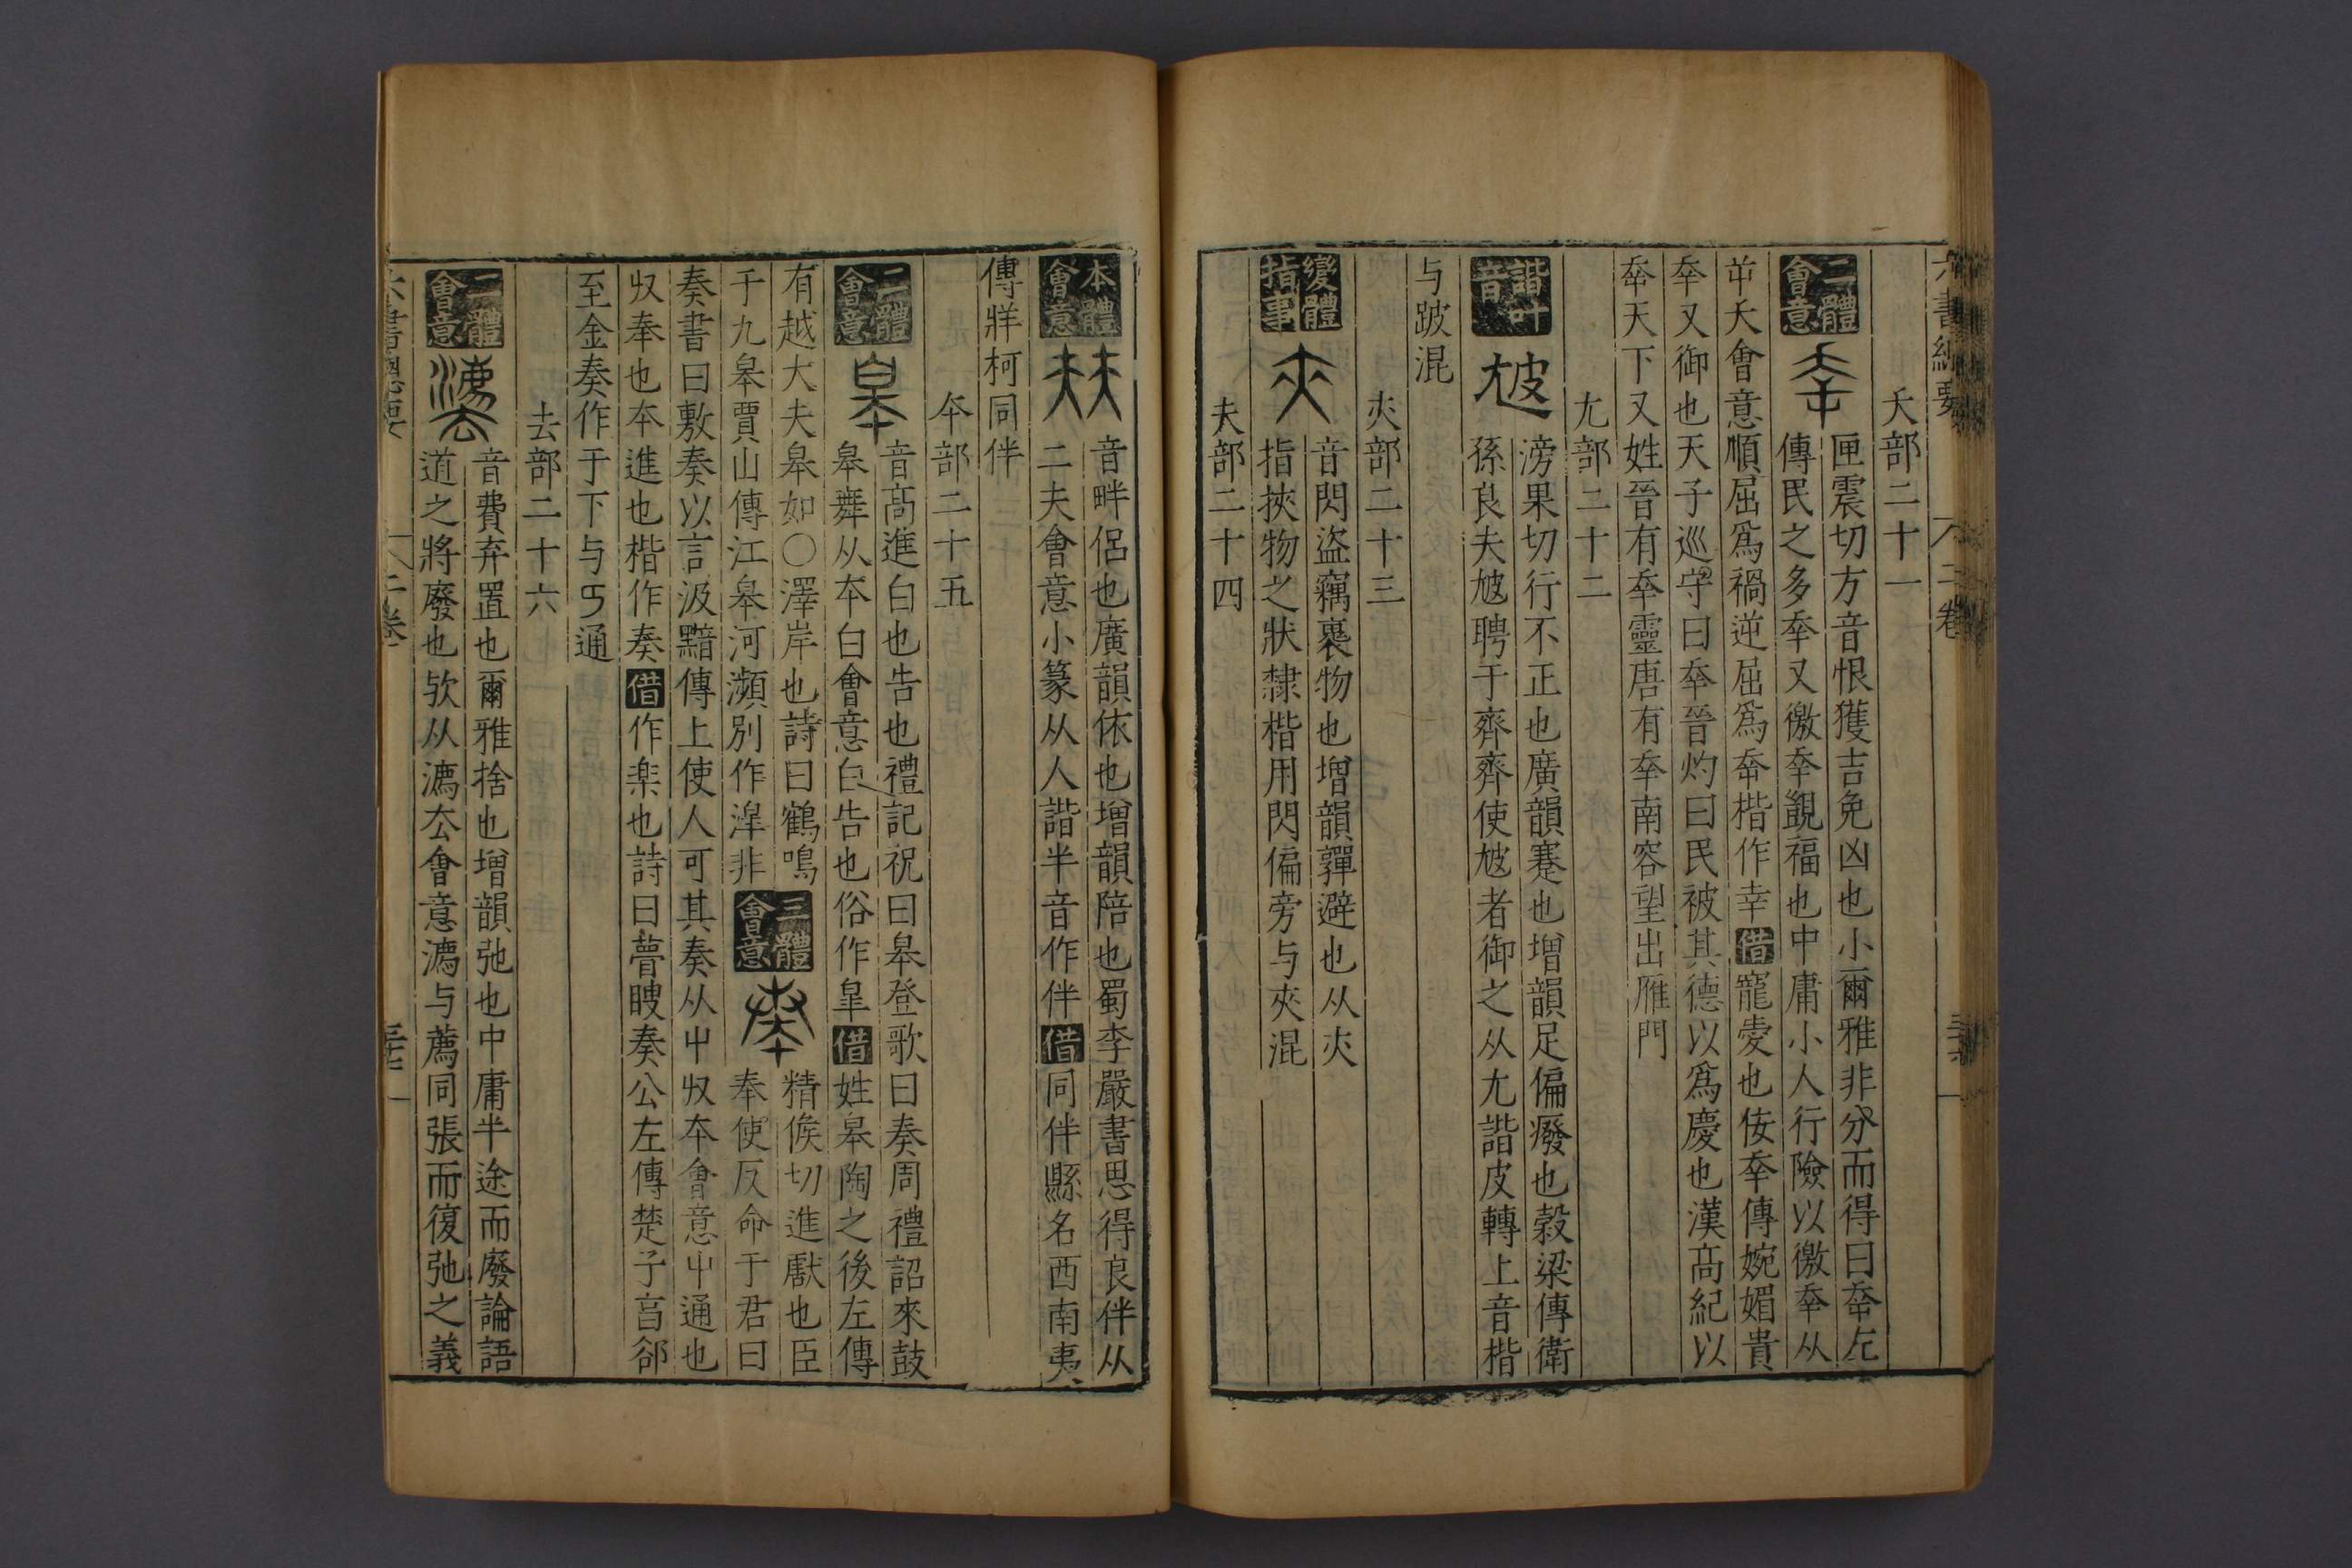 六書總要 二卷
夭部二十一
二體會意 㚔 匣震切方音恨獲吉免凶也小爾雅非分而得曰㚔左
傳民之多㚔又徼㚔覬福也中庸小人行險以徼㚔从
屰夭會意順屈爲禍逆屈爲㚔楷作幸借寵愛也佞㚔傳婉媚貴
㚔又御也天子巡守曰㚔晉灼曰民被其德以爲慶也漢高紀以
㚔天下又姓晉有㚔靈唐有㚔南容望出雁門
尢部二十二
諧叶音 尳 滂果切行不正也廣韻蹇也增韻足偏癈也穀梁傳衛
孫良夫𡯄聘于齊齊使𡯄者御之从尢諧皮轉上音楷
与跛混
㚒部二十三
變體指事 㚒 音閃盜竊褱物也增韻嚲避也从㚒
指挾物之狀隸楷用閃偏旁与夾混
夫部二十四
本體會意 㚘 音畔侶也廣韻依也增韻陪也蜀李嚴書思得良伴从
二夫會意小篆从人諧半音作伴借同伴縣名西南夷
傳牂柯同伴
夲部二十五
二體會意 皋 音高進白也告也禮記祝曰皋登歌曰奏周禮詔來鼓
皋舞从夲白會意白告也俗作皐借姓皋陶之後左傳
有越大夫皋如〇澤岸也詩曰鶴鳴
于九皋賈山傳江皋河瀕別作滜非 三體會意 奏 精候切進獻也臣
奉使反命于君曰
奏書曰敷奏以言汲黯傳上使人可其奏从屮𠬞夲會意屮通也
𠬞奉也夲進也楷作奏借作楽也詩曰瞢瞍奏公左傳楚子享郤
至金奏作于下与丂通
去部二十六
二體會意 灋 音費弃置也爾雅捨也增韻弛也中庸半途而廢論語
道之將廢也欤从灋厺會意灋与薦同張而復弛之義
六書總要 二卷